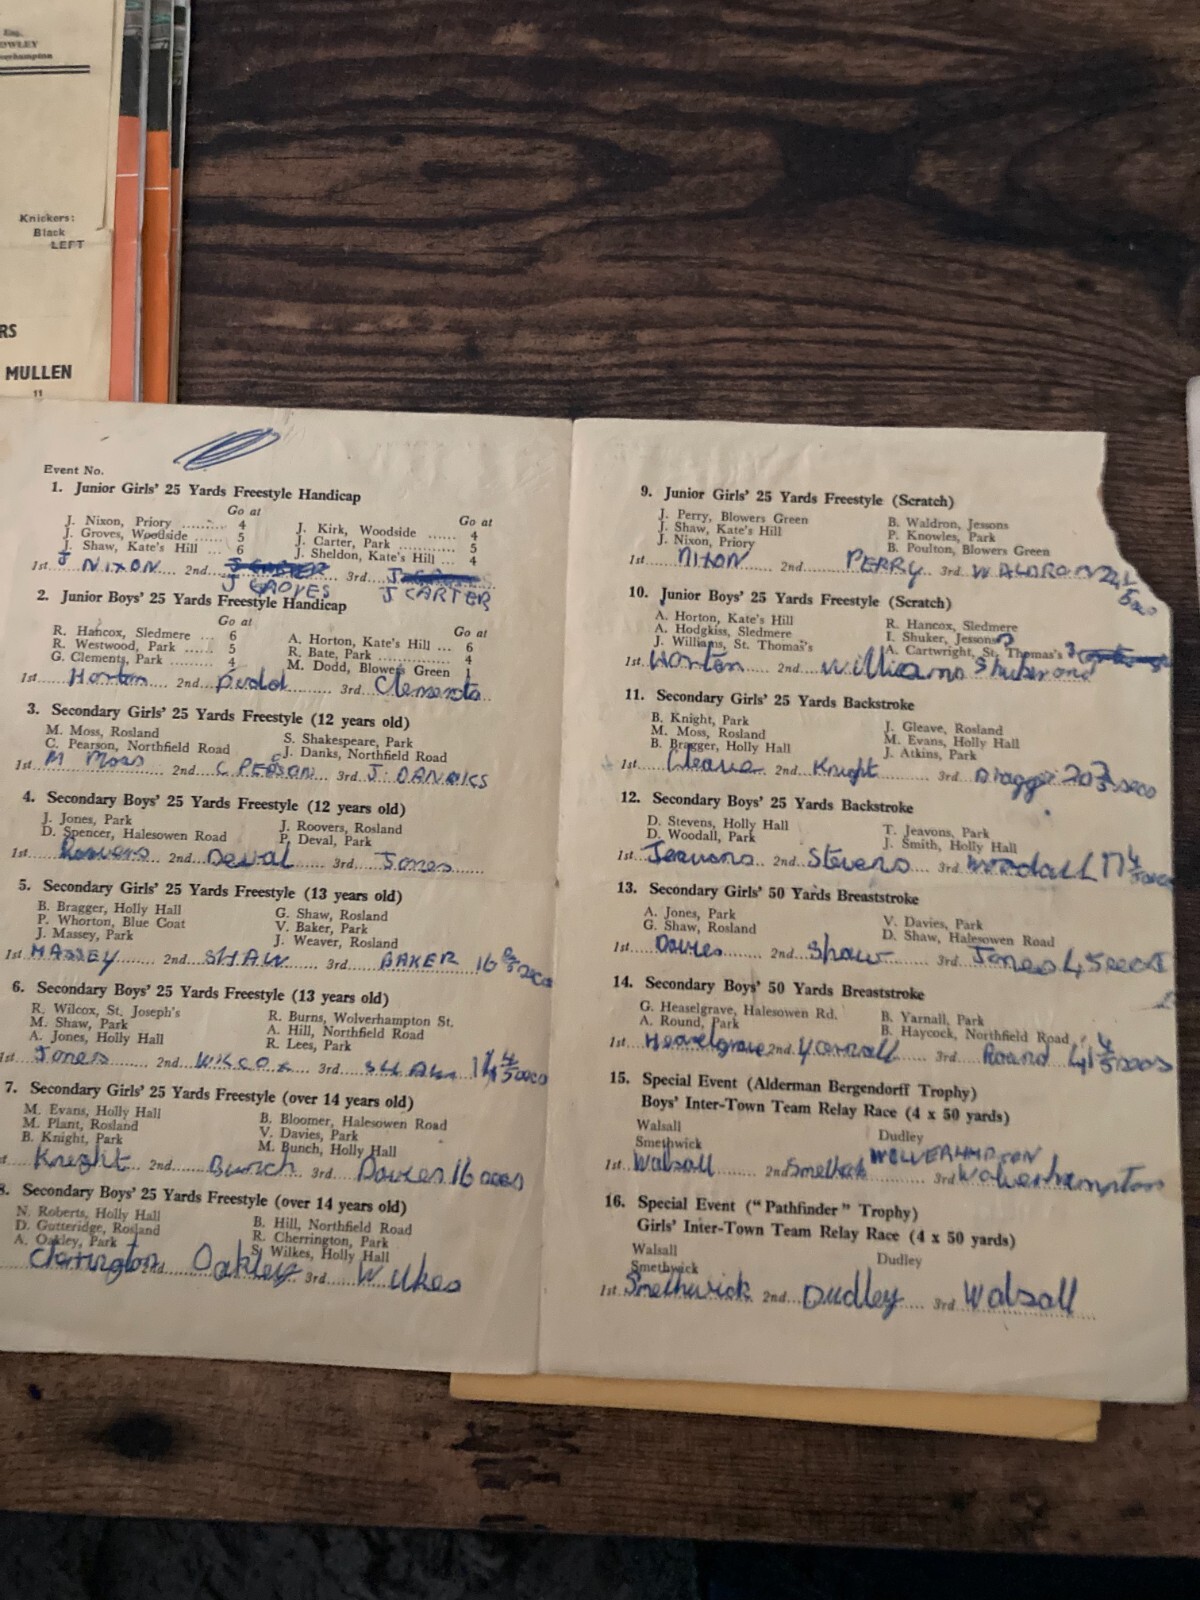 Esq.
OWLEY
verhampton
Knickers:
Black
LEFT
RS
MULLEN
11
Event No.
1. Junior Girls' 25 Yards Freestyle Handicap
Go at Go at
J. Nixon, Priory ......... 4 J. Kirk, Woodside ...... 4
J. Groves, Woodside ... 5 J. Carter, Park ............ 5
J. Shaw, Kate's Hill ... 6 J. Sheldon, Kate's Hill ... 4
1st J NIXON 2nd 3rd J
J GROVES J CARTER
2. Junior Boys' 25 Yards Freestyle Handicap
Go at Go at
R. Hancox, Sledmere ... 6 A. Horton, Kate's Hill ... 6
R. Westwood, Park ...... 5 R. Bate, Park ............... 4
G. Clements, Park ......... 4 M. Dodd, Blowers Green 1
1st Horton 2nd Dodd 3rd Clements
3. Secondary Girls' 25 Yards Freestyle (12 years old)
M. Moss, Rosland S. Shakespeare, Park
C. Pearson, Northfield Road J. Danks, Northfield Road
1st M Moss 2nd C PEARSON 3rd J. DANKS
4. Secondary Boys' 25 Yards Freestyle (12 years old)
J. Jones, Park J. Roovers, Rosland
D. Spencer, Halesowen Road P. Deval, Park
1st Roovers 2nd Deval 3rd Jones
5. Secondary Girls' 25 Yards Freestyle (13 years old)
B. Bragger, Holly Hall G. Shaw, Rosland
P. Whorton, Blue Coat V. Baker, Park
J. Massey, Park J. Weaver, Rosland
1st MASSEY 2nd SHAW 3rd BAKER 16 secs
6. Secondary Boys' 25 Yards Freestyle (13 years old)
R. Wilcox, St. Joseph's R. Burns, Wolverhampton St.
M. Shaw, Park A. Hill, Northfield Road
A. Jones, Holly Hall R. Lees, Park
1st Jones 2nd WILCOX 3rd SHAW 14 4/5 secs
7. Secondary Girls' 25 Yards Freestyle (over 14 years old)
M. Evans, Holly Hall B. Bloomer, Halesowen Road
M. Plant, Rosland V. Davies, Park
B. Knight, Park M. Bunch, Holly Hall
Knight 2nd Bunch 3rd Davies 16 secs
8. Secondary Boys' 25 Yards Freestyle (over 14 years old)
N. Roberts, Holly Hall B. Hill, Northfield Road
D. Gutteridge, Rosland R. Cherrington, Park
A. Oakley, Park S. Wilkes, Holly Hall
Cherrington 2nd Oakley 3rd Wilkes
9. Junior Girls' 25 Yards Freestyle (Scratch)
J. Perry, Blowers Green B. Waldron, Jessons
J. Shaw, Kate's Hill P. Knowles, Park
J. Nixon, Priory B. Poulton, Blowers Green
1st NIXON 2nd PERRY 3rd WALDRON
10. Junior Boys' 25 Yards Freestyle (Scratch)
A. Horton, Kate's Hill R. Hancox, Sledmere
A. Hodgkiss, Sledmere I. Shuker, Jessons
J. Williams, St. Thomas's A. Cartwright, St. Thomas's
1st Horton 2nd Williams Shuker
11. Secondary Girls' 25 Yards Backstroke
B. Knight, Park J. Gleave, Rosland
M. Moss, Rosland M. Evans, Holly Hall
B. Bragger, Holly Hall J. Atkins, Park
1st Gleave 2nd Knight 3rd Bragger 20 3/5 secs
12. Secondary Boys' 25 Yards Backstroke
D. Stevens, Holly Hall T. Jeavons, Park
D. Woodall, Park J. Smith, Holly Hall
1st Jeavons 2nd Stevens 3rd Woodall 17 4/5 secs
13. Secondary Girls' 50 Yards Breaststroke
A. Jones, Park V. Davies, Park
G. Shaw, Rosland D. Shaw, Halesowen Road
1st Davies 2nd Shaw 3rd Jones 45
14. Secondary Boys' 50 Yards Breaststroke
G. Heaselgrave, Halesowen Rd. B. Yarnall, Park
A. Round, Park B. Haycock, Northfield Road
1st Heaselgrave 2nd Yarnall 3rd Round 41 4/5 secs
15. Special Event (Alderman Bergendorff Trophy)
Boys' Inter-Town Team Relay Race (4 x 50 yards)
Walsall Dudley
Smethwick WOLVERHAMPTON
1st Walsall 2nd Smethwick 3rd Wolverhampton
16. Special Event ("Pathfinder" Trophy)
Girls' Inter-Town Team Relay Race (4 x 50 yards)
Walsall Dudley
Smethwick
1st Smethwick 2nd Dudley 3rd Walsall